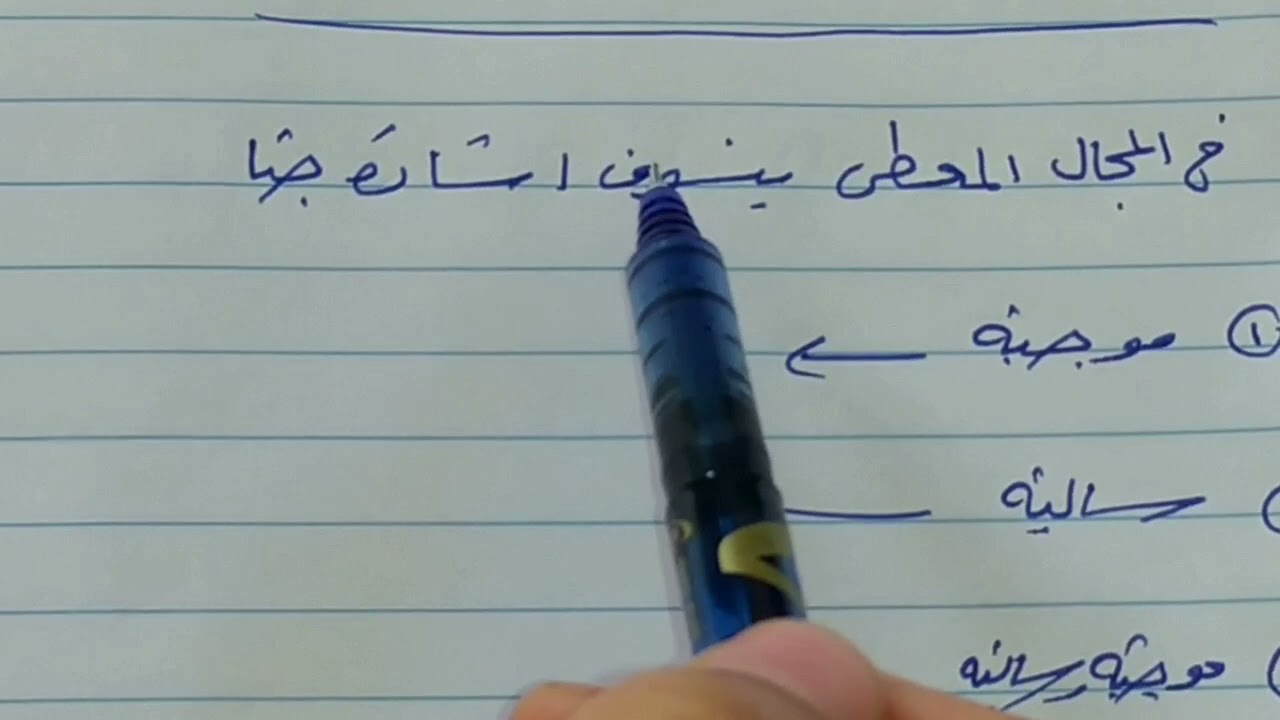 في المجال المعطى بنشوف اشارة جتا
① موجبة ←
سالبة
موجبة وسالبة